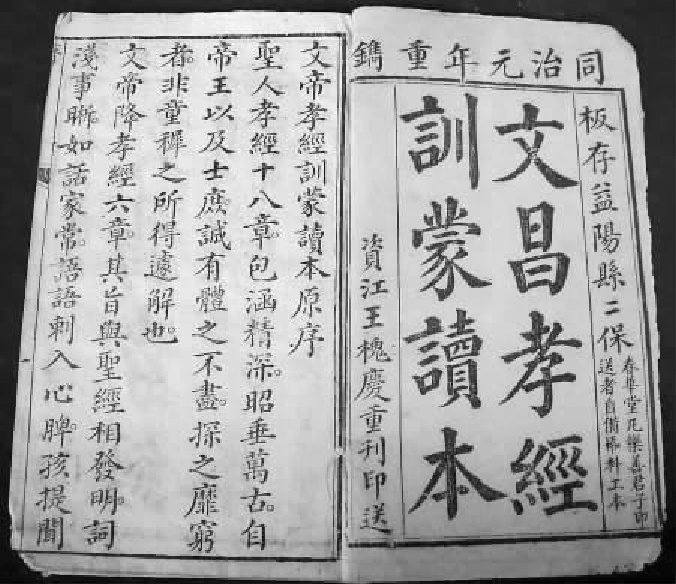 同治元年重鐫
板存益陽縣二保
春華堂凡樂善君子印
送者自備紙料工本
文昌孝經
訓蒙讀本
資江王槐慶重刊印送
文帝孝經訓蒙讀本原序
聖人孝經十八章包涵精深。昭垂萬古。自
帝王以及士庶誠有體之不盡。探之靡窮
者。非童穉之所得遽解也。
文帝降孝經六章。其旨與聖經相發明。詞
淺事晰。如話家常。語語刺入心脾。孩提聞